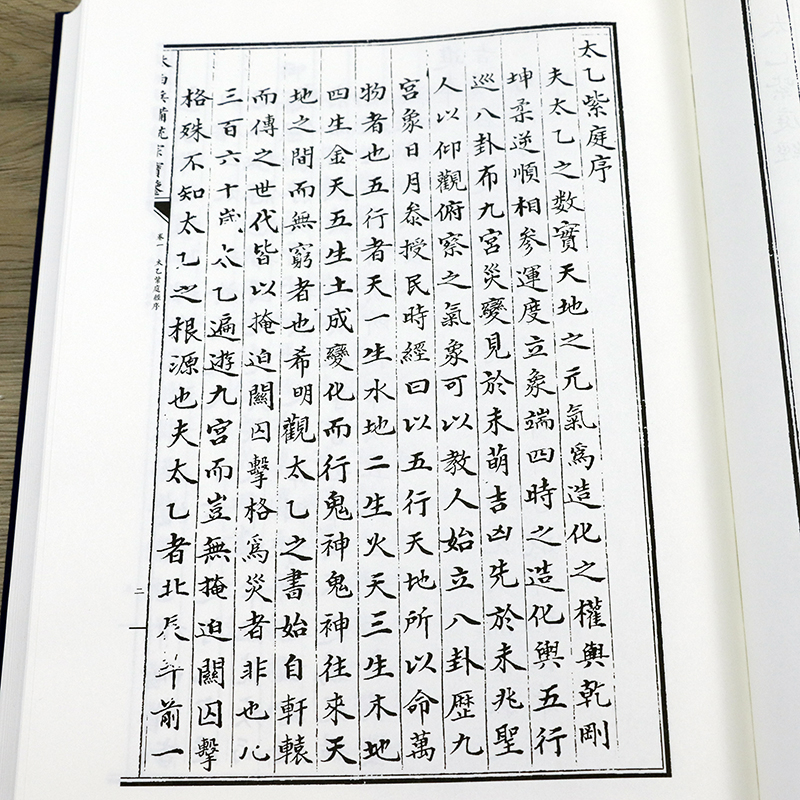 太乙紫庭序
夫太乙之数實天地之元氣爲造化之權輿乾剛
坤柔逆順相参運度立象端四時之造化輿五行
巡八卦布九宮災變見於未萌吉凶先於未兆聖
人以仰觀俯察之氣象可以教人始立八卦歷九
宮象日月叅授民時經曰以五行天地所以命萬
物者也五行者天一生水地二生火天三生木地
四生金天五生土成變化而行鬼神鬼神往來天
地之間而無窮者也希明觀太乙之書始自軒轅
而傳之世代皆以掩迫關囚擊格爲災者非也凡
三百六十歲太乙遍遊九宮而豈無掩迫關囚擊
格殊不知太乙之根源也夫太乙者北辰前一
卷一 太乙紫庭經序
二